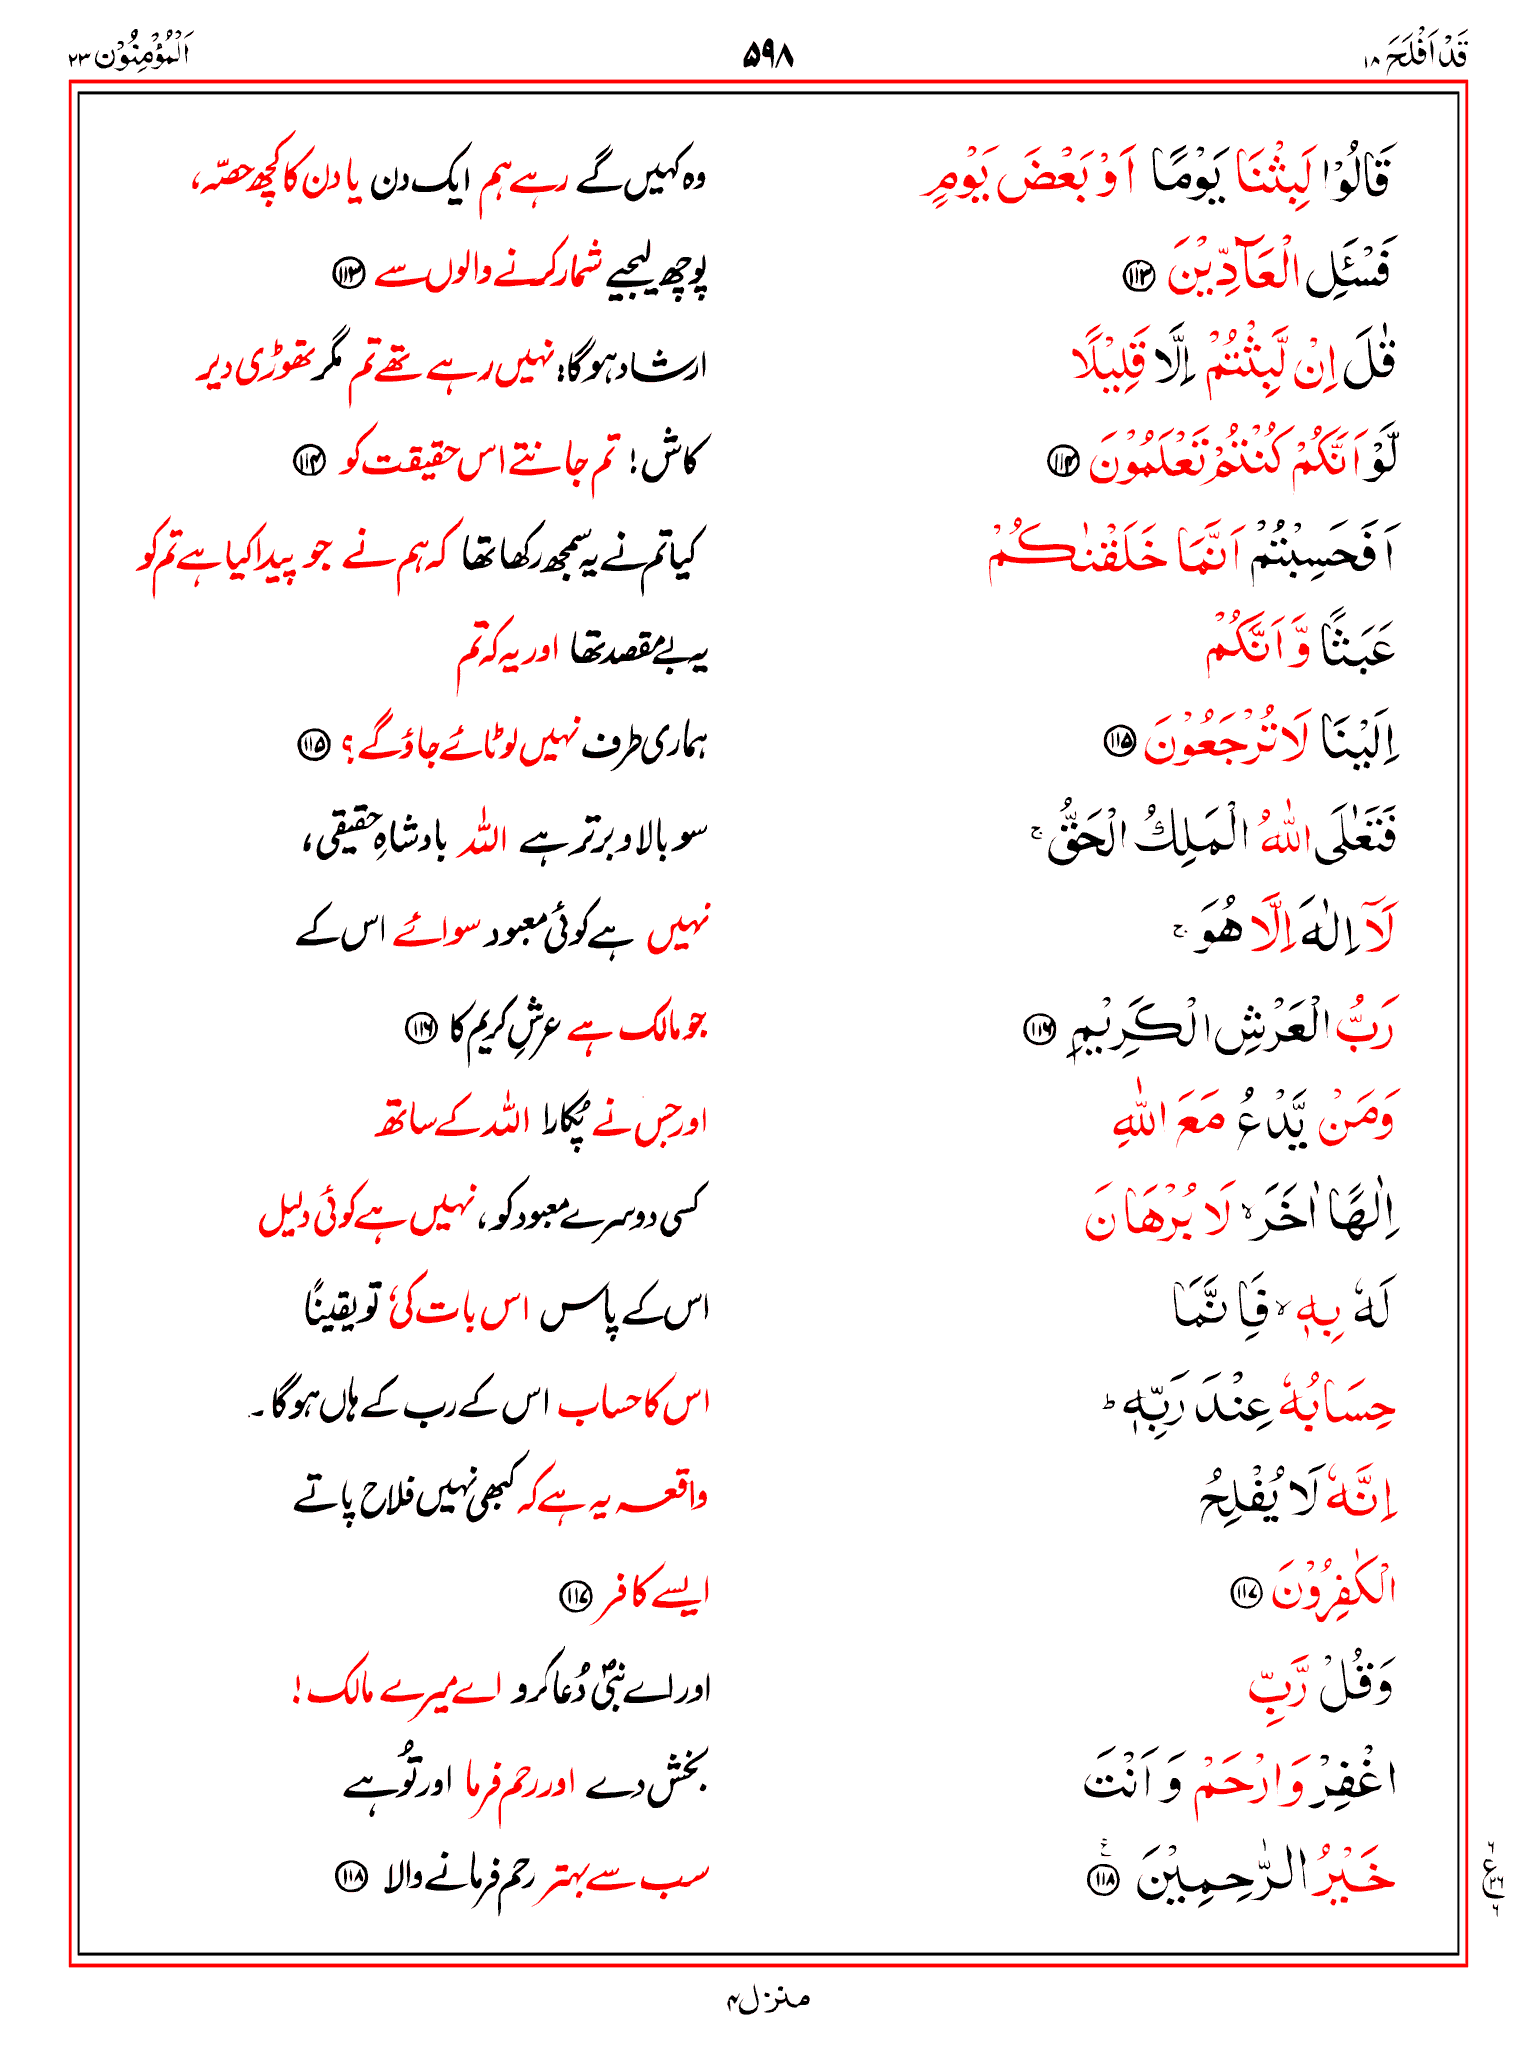 قَدْ اَفْلَحَ ۱۸
۵۹۸
اَلْمُؤْمِنُوْن ۲۳
قَالُوْا لَبِثْنَا يَوْمًا اَوْ بَعْضَ يَوْمٍ
وہ کہیں گے رہے ہم ایک دن یا دن کا کچھ حصّہ،
فَسْـَٔلِ الْعَآدِّيْنَ ۝۱۱۳
پوچھ لیجیے شمار کرنے والوں سے ۝۱۱۳
قٰلَ اِنْ لَّبِثْتُمْ اِلَّا قَلِيْلًا
ارشاد ہوگا: نہیں رہے تھے تم مگر تھوڑی دیر
لَّوْ اَنَّكُمْ كُنْتُمْ تَعْلَمُوْنَ ۝۱۱۴
کاش! تم جانتے اس حقیقت کو ۝۱۱۴
اَفَحَسِبْتُمْ اَنَّمَا خَلَقْنٰكُمْ
کیا تم نے یہ سمجھ رکھا تھا کہ ہم نے جو پیدا کیا ہے تم کو
عَبَثًا وَّاَنَّكُمْ
یہ بے مقصد تھا اور یہ کہ تم
اِلَيْنَا لَا تُرْجَعُوْنَ ۝۱۱۵
ہماری طرف نہیں لوٹائے جاؤ گے؟ ۝۱۱۵
فَتَعٰلَى اللّٰهُ الْمَلِكُ الْحَقُّ ۚ
سو بالا و برتر ہے اللہ بادشاہِ حقیقی،
لَاۤ اِلٰهَ اِلَّا هُوَ ۚ
نہیں ہے کوئی معبود سوائے اس کے
رَبُّ الْعَرْشِ الْكَرِيْمِ ۝۱۱۶
جو مالک ہے عرشِ کریم کا ۝۱۱۶
وَمَنْ يَّدْعُ مَعَ اللّٰهِ
اور جس نے پُکارا اللہ کے ساتھ
اِلٰهًا اٰخَرَ ۙ لَا بُرْهَانَ
کسی دوسرے معبود کو، نہیں ہے کوئی دلیل
لَهٗ بِهٖ ۙ فَاِنَّمَا
اس کے پاس اس بات کی، تو یقینًا
حِسَابُهٗ عِنْدَ رَبِّهٖ ؕ
اس کا حساب اس کے رب کے ہاں ہوگا۔
اِنَّهٗ لَا يُفْلِحُ
واقعہ یہ ہے کہ کبھی نہیں فلاح پاتے
الْكٰفِرُوْنَ ۝۱۱۷
ایسے کافر ۝۱۱۷
وَقُلْ رَّبِّ
اور اے نبیؐ دُعا کرو اے میرے مالک!
اغْفِرْ وَارْحَمْ وَاَنْتَ
بخش دے اور رحم فرما اور تُو ہے
خَيْرُ الرّٰحِمِيْنَ ۝۱۱۸ ع
سب سے بہتر رحم فرمانے والا ۝۱۱۸
۶
ع ۲۶
۶
منزل ۴